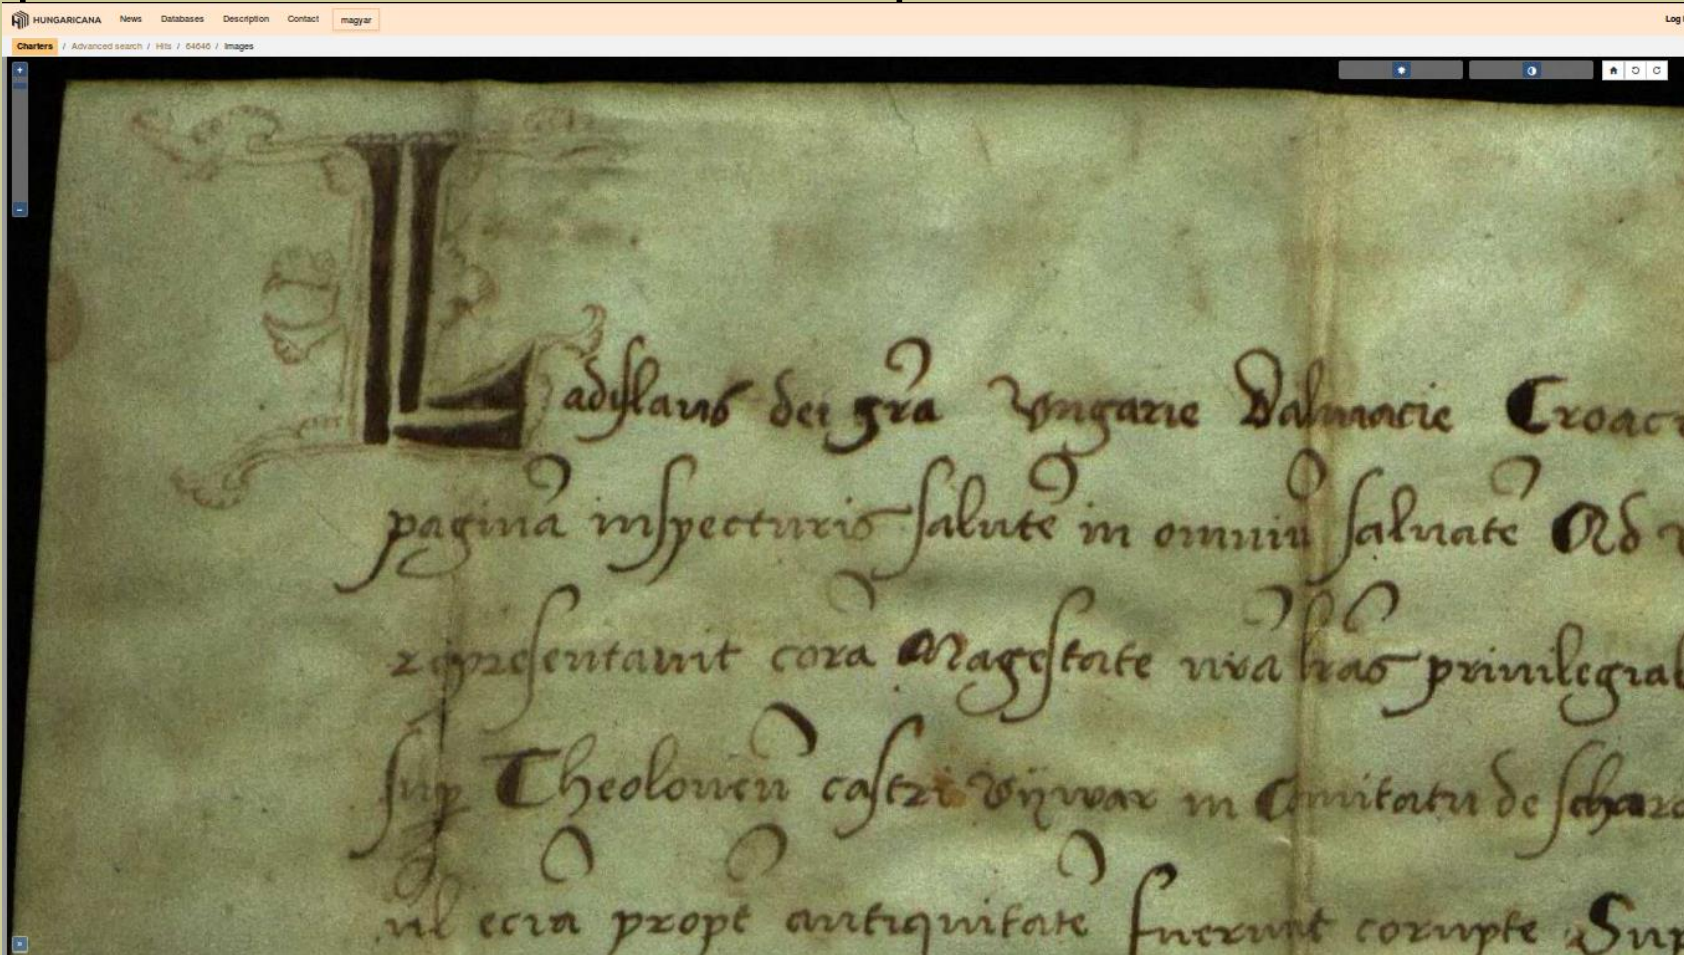 HUNGARICANA News Databases Description Contact magyar Log
Charters / Advanced search / Hits / 64646 / Images
Ladislaus dei gra Vngarie Dalmacie Croaci
pagina inspecturis salute in omniu saluate Ad
representauit cora Magestate nra lras priuilegial
sup Theoloniu castri Vywar in Comitatu de scharo
ul ecia prope antiquitate fuerunt corupte Sup